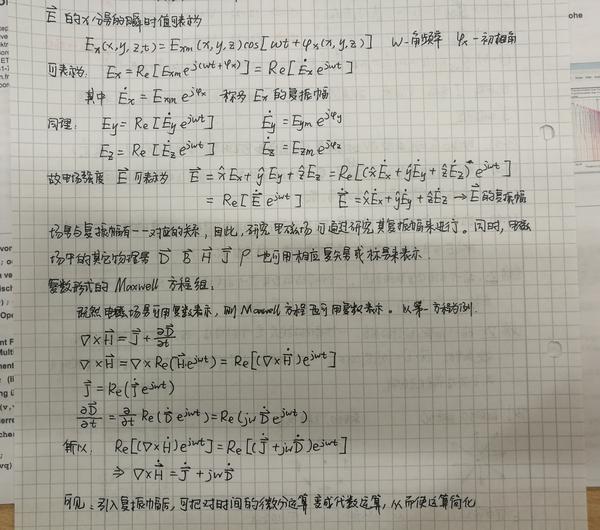 $\vec{E}$ 的x分量的瞬时值可表为
$E_x(x,y,z,t) = E_{xm}(x,y,z)\cos[\omega t + \varphi_x(x,y,z)]$ ω-角频率 $\varphi_x$-初相角
可表为: $E_x = Re[E_{xm} e^{j(\omega t+\varphi_x)}] = Re[\dot{E}_x e^{j\omega t}]$
其中 $\dot{E}_x = E_{xm} e^{j\varphi_x}$ 称为 $E_x$ 的复振幅
同理: $E_y = Re[\dot{E}_y e^{j\omega t}]$ $\dot{E}_y = E_{ym} e^{j\varphi_y}$
$E_z = Re[\dot{E}_z e^{j\omega t}]$ $\dot{E}_z = E_{zm} e^{j\varphi_z}$
故电场强度 $\vec{E}$ 可表为 $\vec{E} = \hat{x}E_x + \hat{y}E_y + \hat{z}E_z = Re[(\hat{x}\dot{E}_x + \hat{y}\dot{E}_y + \hat{z}\dot{E}_z) e^{j\omega t}]$
$= Re[\dot{\vec{E}} e^{j\omega t}]$ $\dot{\vec{E}} = \hat{x}\dot{E}_x + \hat{y}\dot{E}_y + \hat{z}\dot{E}_z$ → $\vec{E}$ 的复振幅
场量与复振幅有一一对应的关系, 因此, 研究电磁场可通过研究其复振幅来进行。同时, 电磁
场中的其它物理量 $\vec{D}$ $\vec{B}$ $\vec{H}$ $\vec{J}$ ρ 也可用相应复矢量或标量来表示.
复数形式的 Maxwell 方程组:
既然电磁场量可用复数表示, 则 Maxwell 方程也可用复数表示。以第一方程为例.
$\nabla\times\vec{H} = \vec{J} + \frac{\partial\vec{D}}{\partial t}$
$\nabla\times\vec{H} = \nabla\times Re(\dot{\vec{H}} e^{j\omega t}) = Re[(\nabla\times\dot{\vec{H}}) e^{j\omega t}]$
$\vec{J} = Re(\dot{\vec{J}} e^{j\omega t})$
$\frac{\partial\vec{D}}{\partial t} = \frac{\partial}{\partial t} Re(\dot{\vec{D}} e^{j\omega t}) = Re(j\omega\dot{\vec{D}} e^{j\omega t})$
所以 $Re[(\nabla\times\dot{\vec{H}}) e^{j\omega t}] = Re[(\dot{\vec{J}} + j\omega\dot{\vec{D}}) e^{j\omega t}]$
⇒ $\nabla\times\dot{\vec{H}} = \dot{\vec{J}} + j\omega\dot{\vec{D}}$
可见: 引入复振幅后, 可把对时间的微分运算变成代数运算, 从而使运算简化